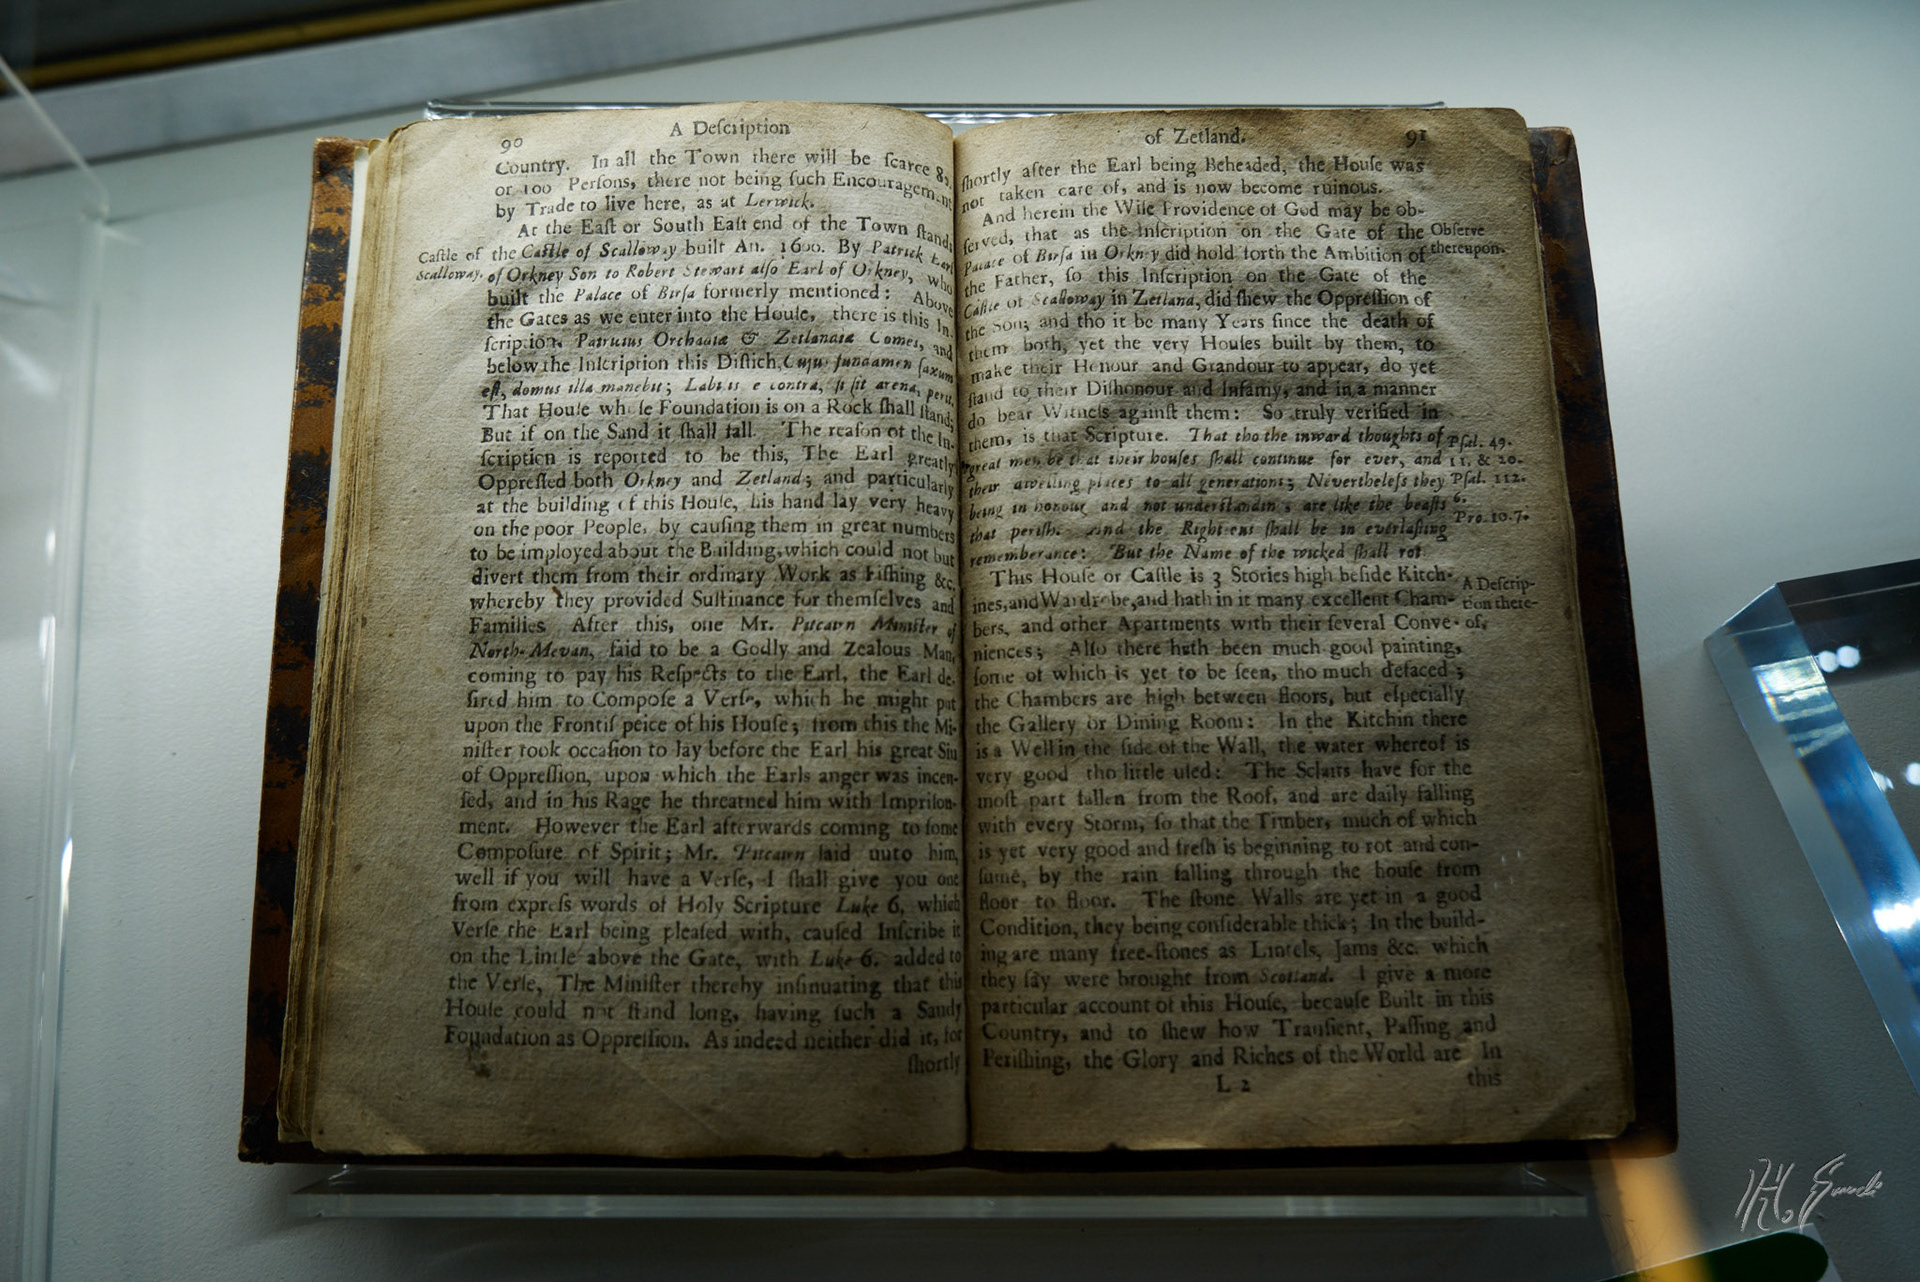 90
A Deſcription
Country. In all the Town there will be ſcarce 80
or 100 Perſons, there not being ſuch Encouragement
by Trade to live here, as at Lerwick.
At the Eaſt or South Eaſt end of the Town ſtands
Caſtle of
Scalloway.
the Caſtle of Scalloway built An. 1600. By Patrick Earl
of Orkney Son to Robert Stewart alſo Earl of Orkney, who
built the Palace of Birſa formerly mentioned: Above
the Gates as we enter into the Houſe, there is this In-
ſcription. Patritius Orchadiæ & Zetlandiæ Comes, and
below the Inſcription this Diſtich, Cujus fundamen ſaxum
eſt, domus illa manebit; Labilis e contra, ſi ſit arena, perit,
That Houſe whoſe Foundation is on a Rock ſhall ſtand;
But if on the Sand it ſhall fall. The reaſon of the In-
ſcription is reported to be this, The Earl greatly
Oppreſſed both Orkney and Zetland; and particularly
at the building of this Houſe, his hand lay very heavy
on the poor People, by cauſing them in great numbers
to be imployed about the Building, which could not but
divert them from their ordinary Work as Fiſhing &c.
whereby they provided Suſtinance for themſelves and
Families. After this, one Mr. Pitcairn Miniſter of
North-Mevan, ſaid to be a Godly and Zealous Man,
coming to pay his Reſpects to the Earl, the Earl de-
ſired him to Compoſe a Verſe, which he might put
upon the Frontiſ peice of his Houſe; from this the Mi-
niſter took occaſion to lay before the Earl his great Sin
of Oppreſſion, upon which the Earls anger was incen-
ſed, and in his Rage he threatned him with Impriſon-
ment. However the Earl afterwards coming to ſome
Compoſure of Spirit; Mr. Pitcairn ſaid unto him,
well if you will have a Verſe, I ſhall give you one
from expreſs words of Holy Scripture Luke 6, which
Verſe the Earl being pleaſed with, cauſed Inſcribe it
on the Lintle above the Gate, with Luke 6. added to
the Verſe, The Miniſter thereby inſinuating that this
Houſe could not ſtand long, having ſuch a Sandy
Foundation as Oppreſſion. As indeed neither did it, for
ſhortly
of Zetland.
91
ſhortly after the Earl being Beheaded, the Houſe was
not taken care of, and is now become ruinous.
And herein the Wiſe Providence of God may be ob-
ſerved, that as the Inſcription on the Gate of the
Observe
thereupon.
Palace of Birſa in Orkney did hold forth the Ambition of
the Father, ſo this Inſcription on the Gate of the
Caſtle of Scalloway in Zetland, did ſhew the Oppreſſion of
the Son; and tho it be many Years ſince the death of
them both, yet the very Houſes built by them, to
make their Honour and Grandour to appear, do yet
ſtand to their Diſhonour and Infamy, and in a manner
do bear Witneſs againſt them: So truly verified in
them, is that Scripture. That tho the inward thoughts of
great men be that their houſes ſhall continue for ever, and
their dwelling places to all generations; Nevertheleſs they
being in honour and not underſtanding are like the beaſts
that periſh. And the Righteous ſhall be in everlaſting
rememberance: But the Name of the wicked ſhall rot
Pſal. 49.
11. & 20.
Pſal. 112.
6.
Pro. 10.7.
This Houſe or Caſtle is 3 Stories high beſide Kitch-
ines, and Wardrobe, and hath in it many excellent Cham-
bers, and other Apartments with their ſeveral Conve-
A Deſcrip-
tion there-
of,
niences; Alſo there hath been much good painting,
ſome of which is yet to be ſeen, tho much defaced;
the Chambers are high between floors, but eſpecially
the Gallery or Dining Room: In the Kitchin there
is a Well in the ſide of the Wall, the water whereof is
very good tho little uſed: The Sclaits have for the
moſt part fallen from the Roof, and are daily falling
with every Storm, ſo that the Timber, much of which
is yet very good and freſh is beginning to rot and con-
ſume, by the rain falling through the houſe from
floor to floor. The ſtone Walls are yet in a good
Condition, they being conſiderable thick; In the build-
ing are many free-ſtones as Lintels, Jams &c. which
they ſay were brought from Scotland. I give a more
particular account of this Houſe, becauſe Built in this
Country, and to ſhew how Tranſient, Paſſing and
Periſhing, the Glory and Riches of the World are In
L 2
this